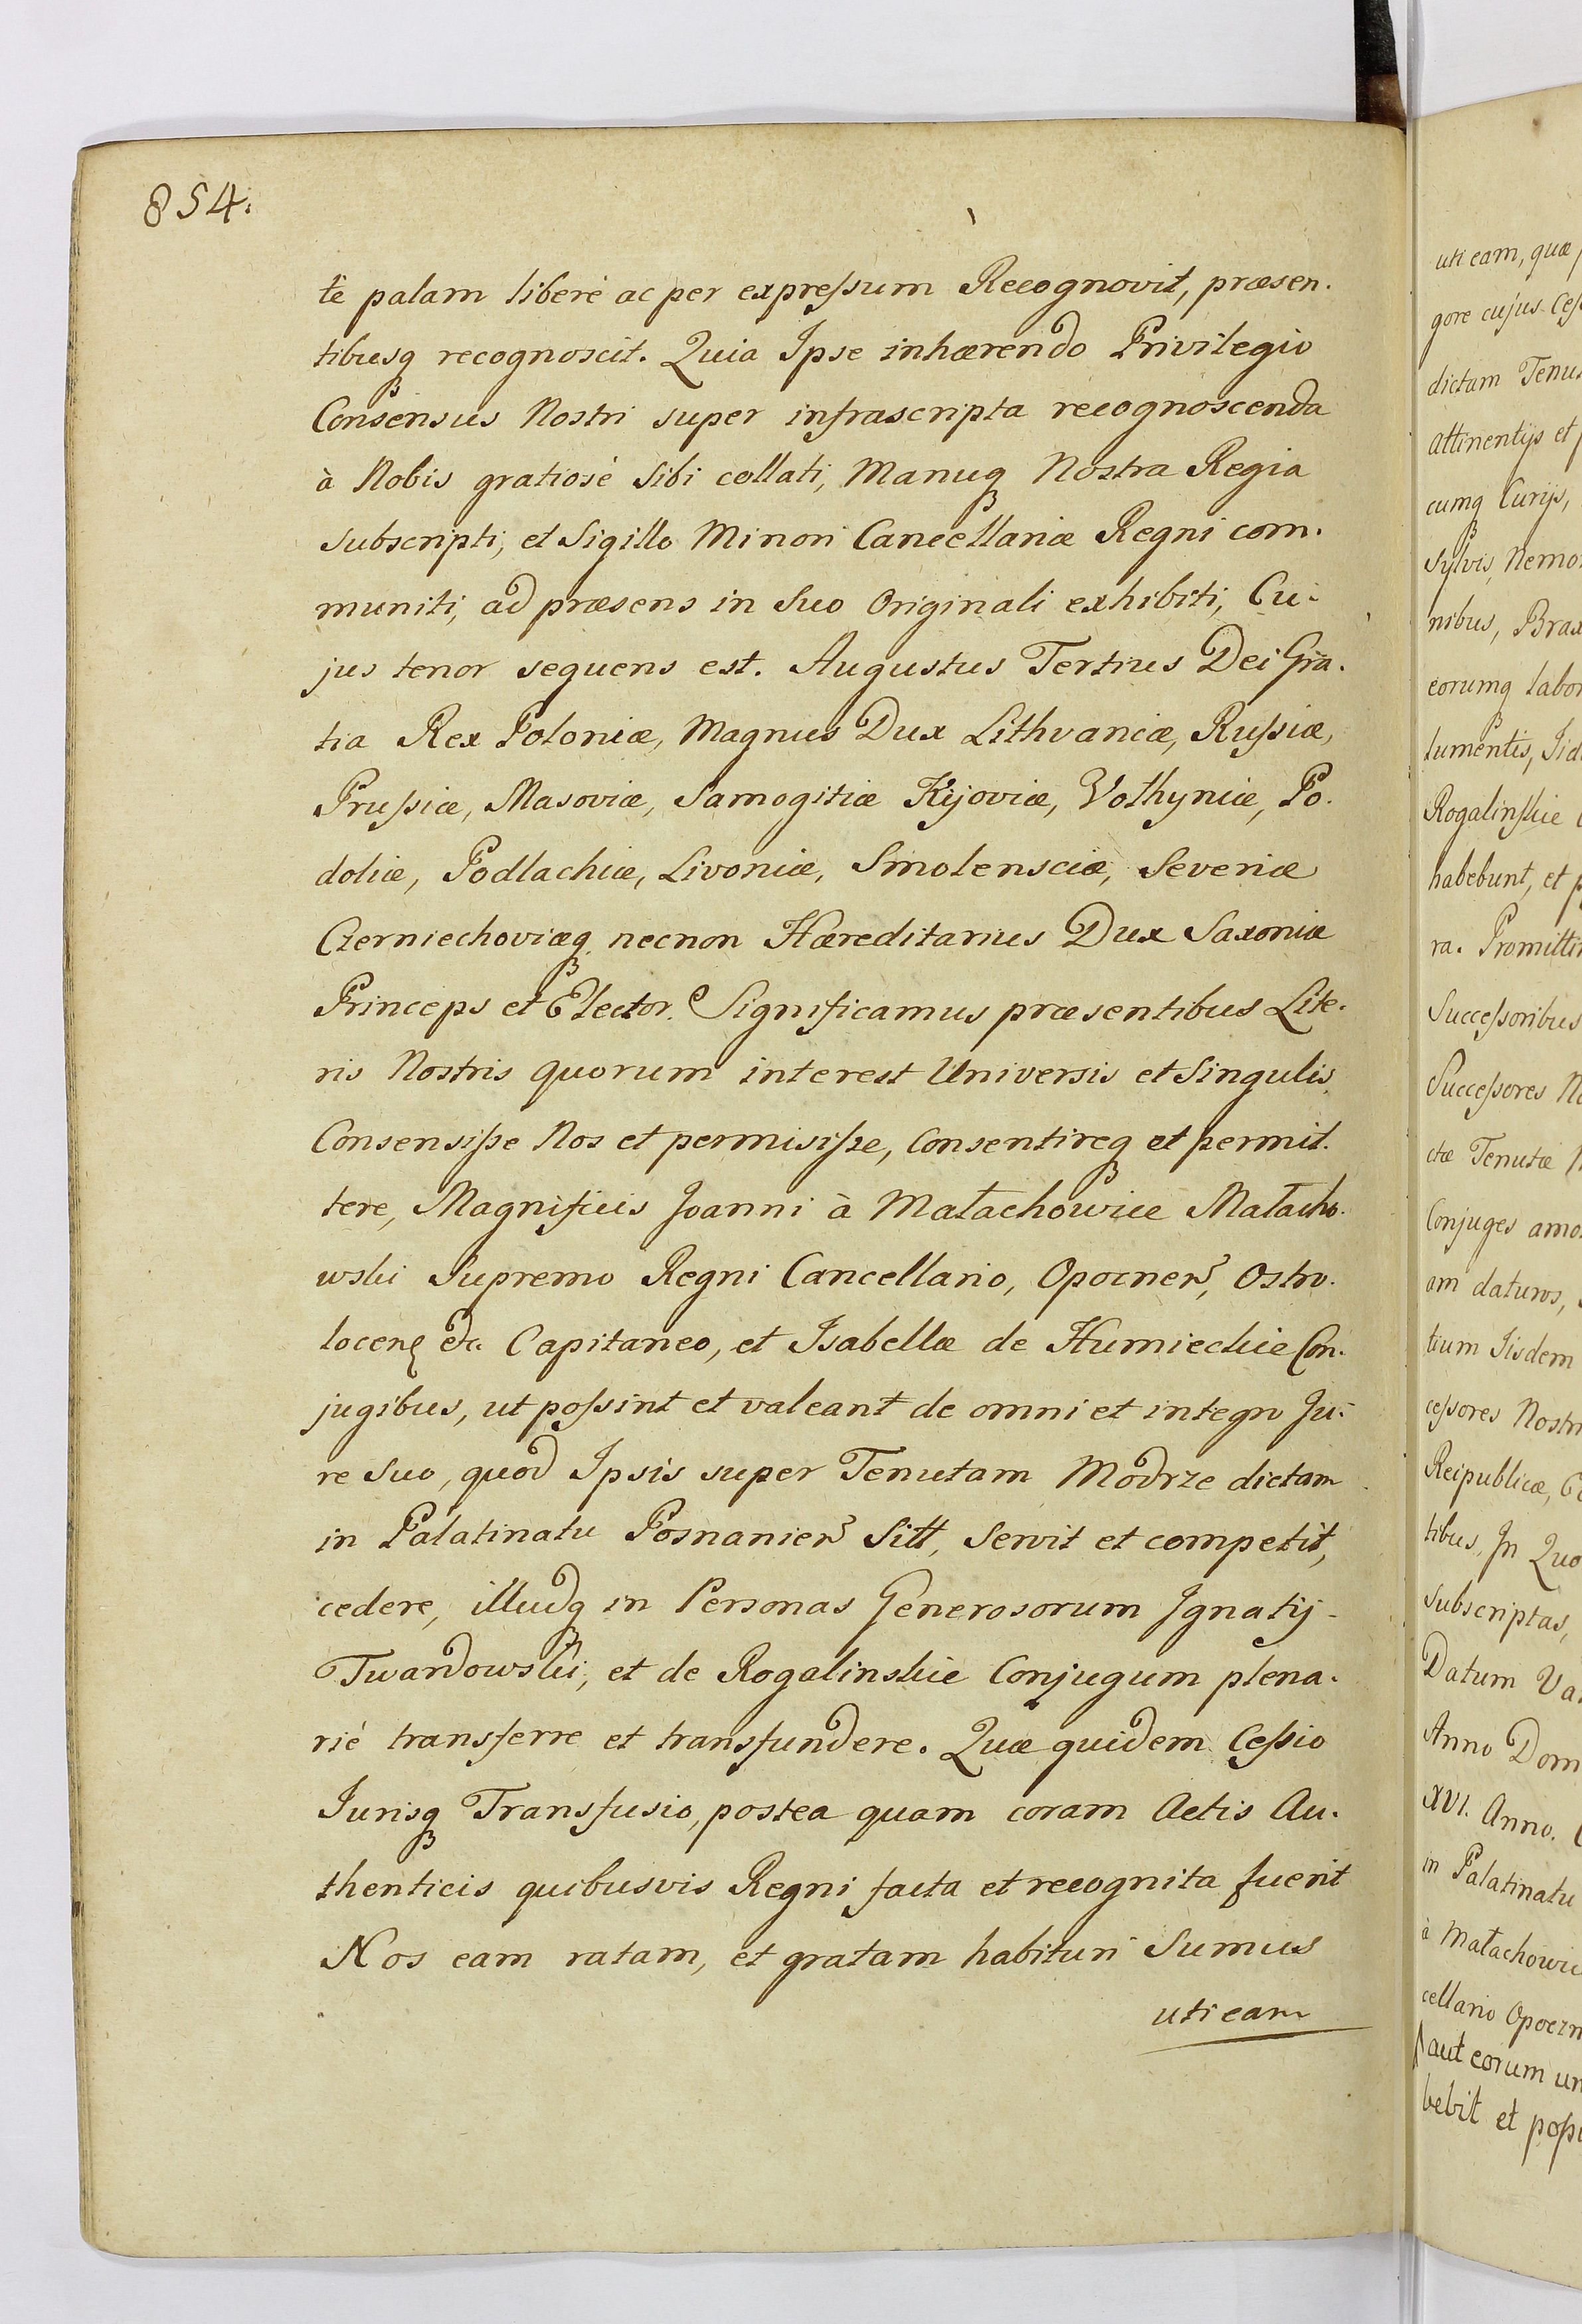 854.
te palam liberè ac per expressum Recognovit, præsen.
tibusq recognoscit. Quia Ipse inhærendo Privilegio
Consensus Nostri super infrascripta recognoscenda
à Nobis gratiosè Sibi collati, Manuq Nostra Regia
subscripti, et Sigillo Minori Cancellariæ Regni com.
muniti, ad præsens in Suo Originali exhibiti, Cu-
jus tenor sequens est. Augustus Tertius Dei Gra.
tia Rex Poloniæ, Magnus Dux Lithvaniæ, Russiæ,
Prussiæ, Masoviæ, Samogitiæ Kijoviæ, Vołhyniæ, Po.
doliæ, Podlachiæ, Livoniæ, Smolensciæ, Severiæ
Czerniechoviæq necnon Hæreditarius Dux Saxoniæ
Princeps et Elector. Significamus præsentibus Lite.
ris Nostris quorum interest Universis et Singulis
Consensisse Nos et permisisse, Consentireq et permit.
tere, Magnificis Joanni à Małachowice Małacho.
wski Supremo Regni Cancellario, Opocnen, Ostro.
locen etc. Capitaneo, et Isabellæ de Humieckie Con.
jugibus, ut possint et valeant de omni et integro Ju-
re Suo, quod Ipsis super Tenutam Modrze dictam
in Palatinatu Posnanien Sitt, Servit et competit,
cedere, illudq in Personas Generosorum Ignatij
Twardowski, et de Rogalinskie Conjugum plena.
riè transferre et transfundere. Quæ quidem Cessio
Jurisq Transfusio, postea quam coram Actis Au.
thenticis quibusvis Regni facta et recognita fuerit
Nos eam ratam, et gratam habituri Sumus
uti eam
uti eam, quæ
gore cujus Ces
dictam Tenu
attinentijs et
cumq Curijs,
Sylvis, Nemo
nibus, Brax
eorumq labor
lumentis, Iid
Rogalinskie
habebunt, et
ra. Promitti
Successoribus
Successores N
ctæ Tenutæ
Conjuges amo
am daturos,
tium Iisdem
cessores Nostri
Reipublicæ,
tibus, In Quo
subscriptas,
Datum Va
Anno Dom
XVI. Anno.
in Palatinatu
à Małachowi
cellario Opoczn
aut eorum un
bebit et poss